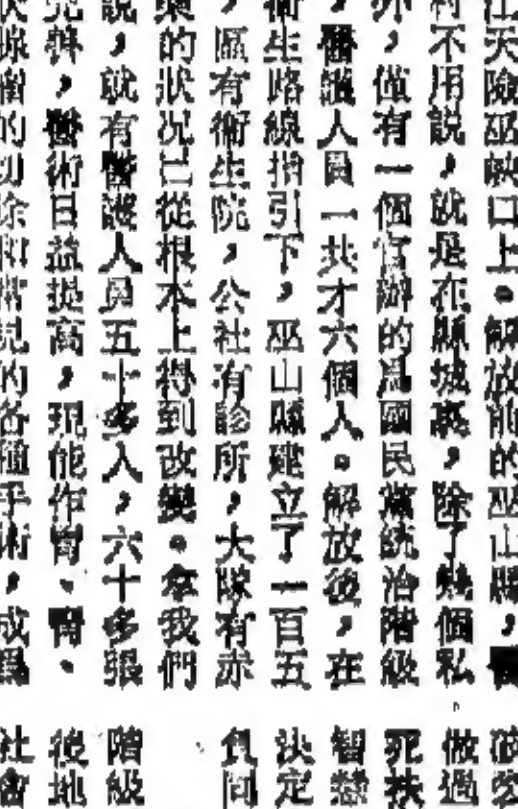 江天險巫峽口上。解放前的巫山縣，
村不用說，就是在縣城裏，除了幾個私
亦，僅有一個官辦的爲國民黨統治階級
，醫護人員一共才六個人。解放後，在
衛生路線指引下，巫山縣建立了一百五
，區有衛生院，公社有診所，大隊有赤
藥的狀況已從根本上得到改變。拿我們
說，就有醫護人員五十多人，六十多張
，醫術日益提高，現能作胃、
的切除和常見的各種手術，成爲
做過
死扶
智慧
決定
負同
階級
後地
社會